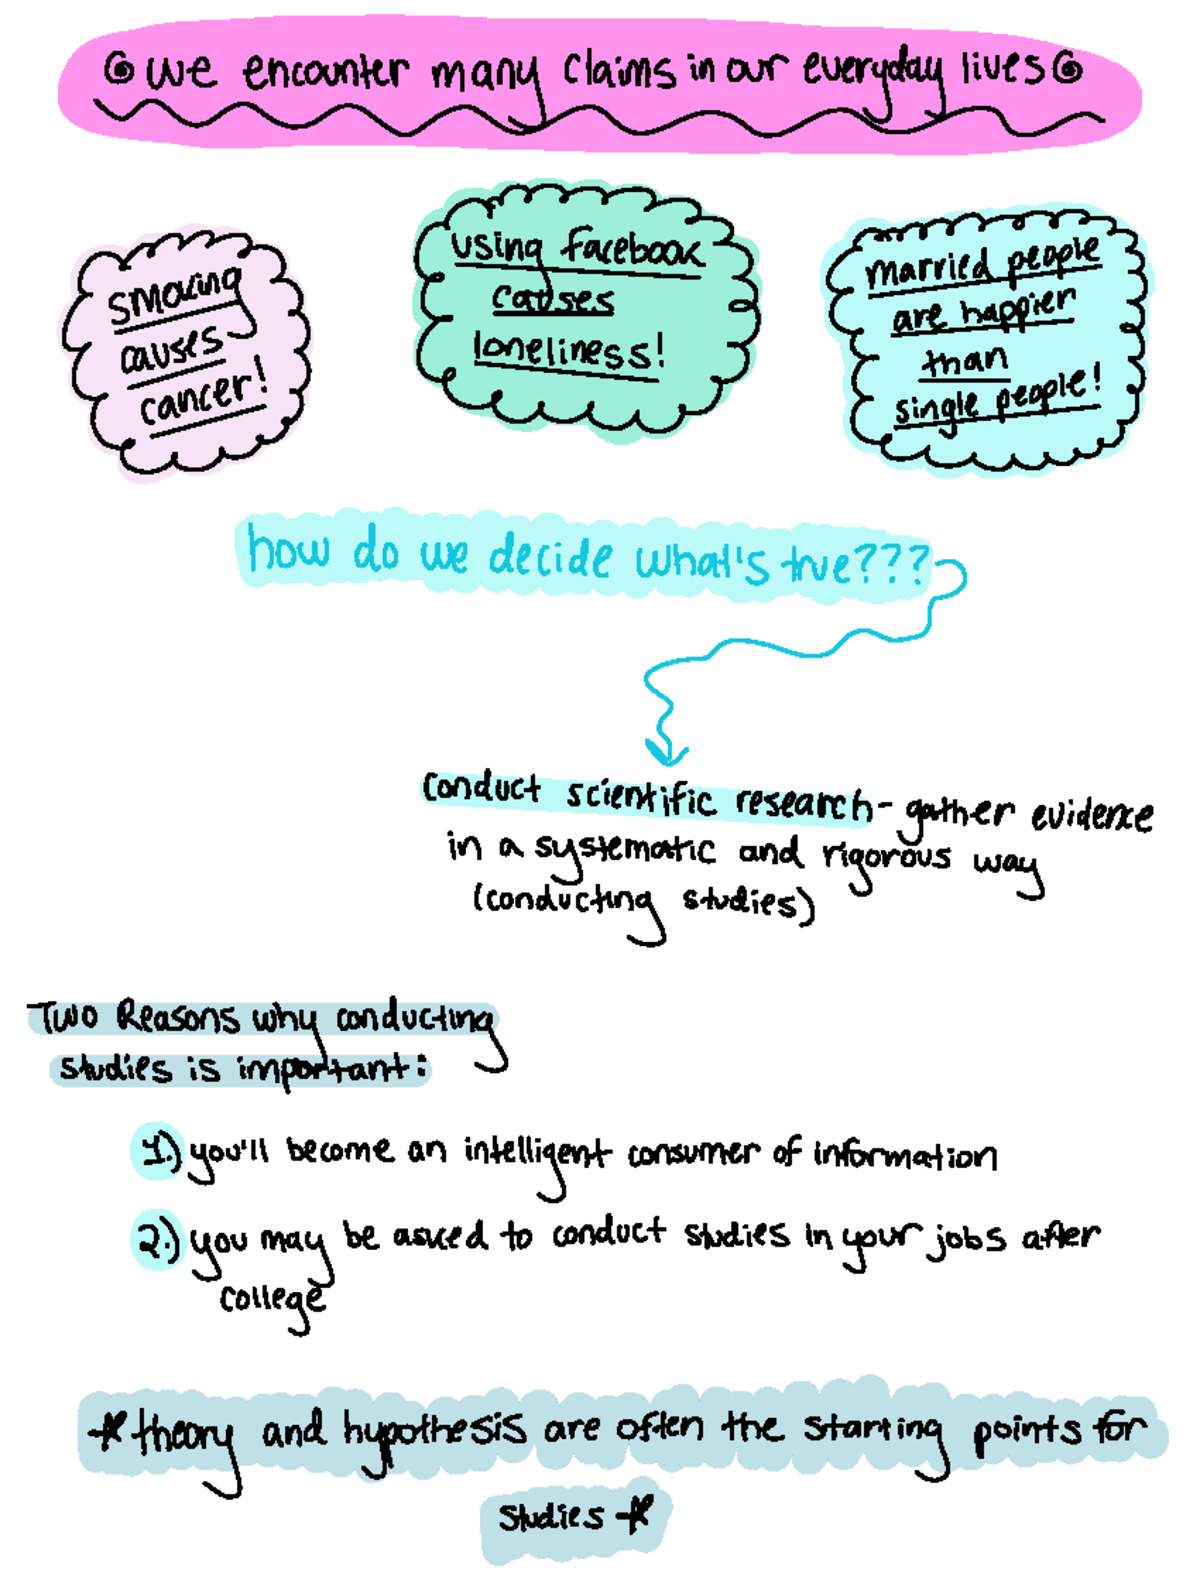 we encounter many claims in our everyday lives
smoking
causes
cancer!
using facebook
causes
loneliness!
married people
are happier
than
single people!
how do we decide what's true???
conduct scientific research - gather evidence
in a systematic and rigorous way
(conducting studies)
Two Reasons why conducting
studies is important:
1.) you'll become an intelligent consumer of information
2.) you may be asked to conduct studies in your jobs after
college
*theory and hypothesis are often the starting points for
studies *